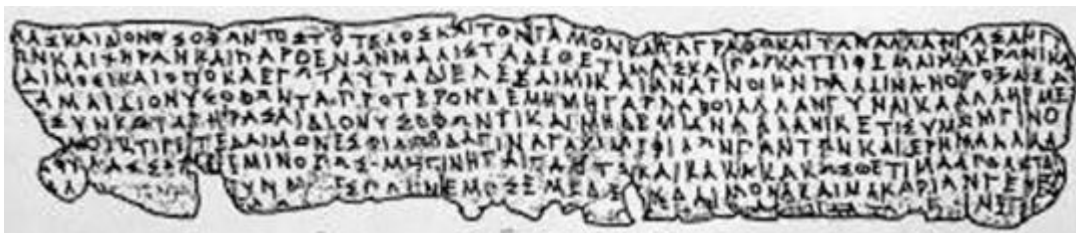 ΜΑΣΚΑΙΔΙΟΝΥΣΟΦΩΝΤΟΣΤΟΤΕΛΟΣΚΑΙΤΟΝΓΑΜΟΝΚΑΤΑΓΡΑΦΩΚΑΙΤΑΝΑΛΛΑΝΠΑΣΑΝΓΥ
ΩΝΚΑΙΧΗΡΑΝΚΑΙΠΑΡΘΕΝΩΝΜΑΛΙΣΤΑΔΕΘΕΤΙΜΑΣΚΑΙΠΑΡΚΑΤΤΙΘΕΜΑΙΜΑΚΡΩΝΙΚΑΙ
ΔΑΙΜΟΣΙΚΑΙΟΠΟΚΑΕΓΩΤΑΥΤΑΔΙΕΛΕΞΑΙΜΙΚΑΙΑΝΑΓΝΟΙΗΝΠΑΛΙΝΑΝΟΡΟΞΑΣΑ
ΓΑΜΑΙΔΙΟΝΥΣΟΦΩΝΤΑΠΡΟΤΕΡΟΝΔΕΜΗΜΗΓΑΡΛΑΒΟΙΑΛΛΑΝΓΥΝΑΙΚΑΑΛΛΗΕΜΕ
ΕΣΥΝΚΑΤΑΓΗΡΑΣΑΙΔΙΟΝΥΣΟΦΩΝΤΙΚΑΙΜΗΔΕΜΙΑΝΑΛΛΑΝΙΚΕΤΙΣΥΜΩΜΓΙΝΟ
ΟΙΚΤΙΡΕΤΕΔΑΙΜΟΝΕΣΦΙΛΟΙΔΑΓΙΝΑΓΑΡΙΜΕΦΙΛΩΝΠΑΝΤΩΝΚΑΙΕΡΗΜΑΑΛΛΑ
ΦΥΛΑΣΣΕΤΕΕΜΙΝΟΠΩΣΜΗΓΙΝΗΤΑΙΤΑΥΤΑΚΑΙΚΑΚΑΚΑΚΩΣΘΕΤΙΜΑΑΠΟΛΗΤΑΙ
ΕΜΟΣΕΜΕΔΕΕΥΔΑΙΜΟΝΑΚΑΙΜΑΚΑΡΙΑΝΓΕΝΕΣΤΑΙ